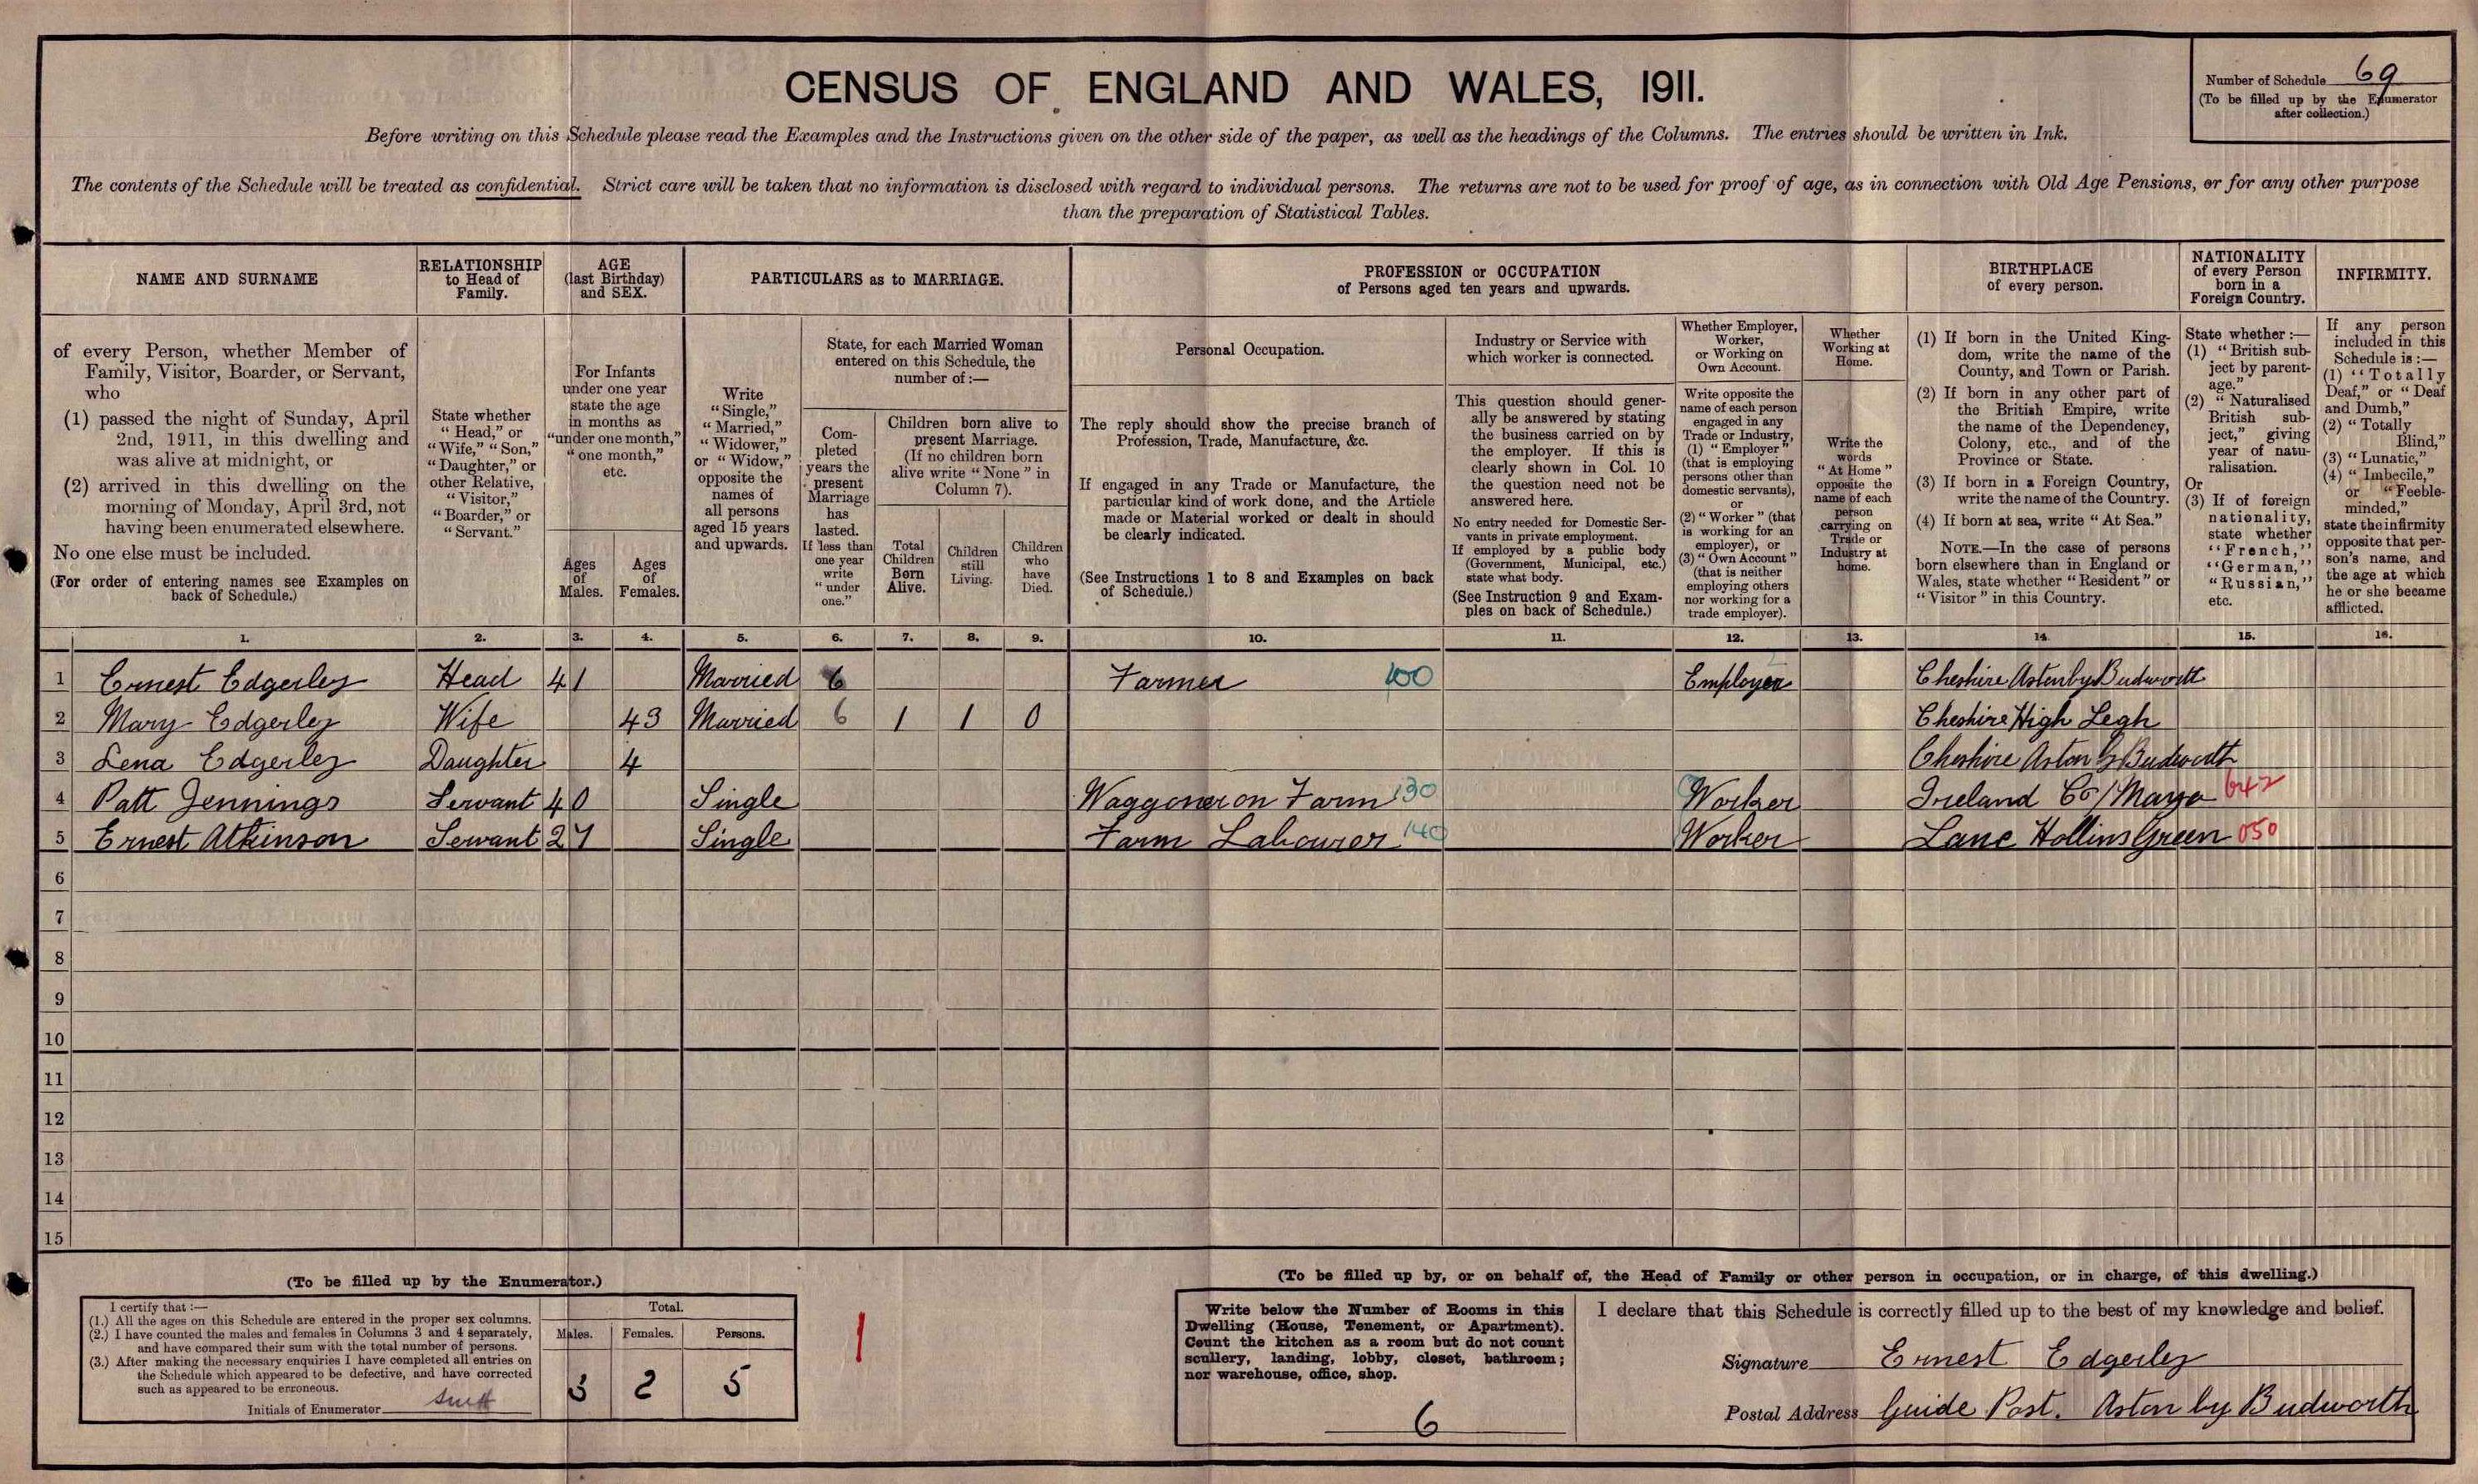 CENSUS OF ENGLAND AND WALES, 1911.
Number of Schedule 69
(To be filled up by the Enumerator
after collection.)
Before writing on this Schedule please read the Examples and the Instructions given on the other side of the paper, as well as the headings of the Columns. The entries should be written in Ink.
The contents of the Schedule will be treated as confidential. Strict care will be taken that no information is disclosed with regard to individual persons. The returns are not to be used for proof of age, as in connection with Old Age Pensions, or for any other purpose
than the preparation of Statistical Tables.
NAME AND SURNAME
of every Person, whether Member of
Family, Visitor, Boarder, or Servant,
who
(1) passed the night of Sunday, April
2nd, 1911, in this dwelling and
was alive at midnight, or
(2) arrived in this dwelling on the
morning of Monday, April 3rd, not
having been enumerated elsewhere.
No one else must be included.
(For order of entering names see Examples on
back of Schedule.)
RELATIONSHIP
to Head of
Family.
State whether
"Head," or
"Wife," "Son,"
"Daughter," or
other Relative,
"Visitor,"
"Boarder," or
"Servant."
AGE
(last Birthday)
and SEX.
For Infants
under one year
state the age
in months as
"under one month,"
"one month,"
etc.
Ages
of
Males.
Ages
of
Females.
PARTICULARS as to MARRIAGE.
Write
"Single,"
"Married,"
"Widower,"
or "Widow,"
opposite the
names of
all persons
aged 15 years
and upwards.
State, for each Married Woman
entered on this Schedule, the
number of:—
Com-
pleted
years the
present
Marriage
has
lasted.
If less than
one year
write
"under
one."
Children born alive to
present Marriage.
(If no children born
alive write "None" in
Column 7).
Total
Children
Born
Alive.
Children
still
Living.
Children
who
have
Died.
PROFESSION or OCCUPATION
of Persons aged ten years and upwards.
Personal Occupation.
The reply should show the precise branch of
Profession, Trade, Manufacture, &c.
If engaged in any Trade or Manufacture, the
particular kind of work done, and the Article
made or Material worked or dealt in should
be clearly indicated.
(See Instructions 1 to 8 and Examples on back
of Schedule.)
Industry or Service with
which worker is connected.
This question should gener-
ally be answered by stating
the business carried on by
the employer. If this is
clearly shown in Col. 10
the question need not be
answered here.
No entry needed for Domestic Ser-
vants in private employment.
If employed by a public body
(Government, Municipal, etc.)
state what body.
(See Instruction 9 and Exam-
ples on back of Schedule.)
Whether Employer,
Worker,
or Working on
Own Account.
Write opposite the
name of each person
engaged in any
Trade or Industry,
(1) "Employer"
(that is employing
persons other than
domestic servants),
or
(2) "Worker" (that
is working for an
employer), or
(3) "Own Account"
(that is neither
employing others
nor working for a
trade employer).
Whether
Working at
Home.
Write the
words
"At Home"
opposite the
name of each
person
carrying on
Trade or
Industry at
home.
BIRTHPLACE
of every person.
(1) If born in the United King-
dom, write the name of the
County, and Town or Parish.
(2) If born in any other part of
the British Empire, write
the name of the Dependency,
Colony, etc., and of the
Province or State.
(3) If born in a Foreign Country,
write the name of the Country.
(4) If born at sea, write "At Sea."
NOTE.—In the case of persons
born elsewhere than in England or
Wales, state whether "Resident" or
"Visitor" in this Country.
NATIONALITY
of every Person
born in a
Foreign Country.
State whether:—
(1) "British sub-
ject by parent-
age."
(2) "Naturalised
British sub-
ject," giving
year of natu-
ralisation.
Or
(3) If of foreign
nationality,
state whether
"French,"
"German,"
"Russian,"
etc.
INFIRMITY.
If any person
included in this
Schedule is:—
(1) "Totally
Deaf," or "Deaf
and Dumb,"
(2) "Totally
Blind,"
(3) "Lunatic,"
(4) "Imbecile,"
or "Feeble-
minded,"
state the infirmity
opposite that per-
son's name, and
the age at which
he or she became
afflicted.
1. 2. 3. 4. 5. 6. 7. 8. 9. 10. 11. 12. 13. 14. 15. 16.
1 Ernest Edgerley Head 41 Married 6 Farmer 100 Employer Cheshire Aston by Budworth
2 Mary Edgerley Wife 43 Married 6 1 1 0 Cheshire High Legh
3 Lena Edgerley Daughter 4 Cheshire Aston by Budworth
4 Patt Jennings Servant 40 Single Waggoner on Farm 130 Worker Ireland Co/Mayo 642
5 Ernest Atkinson Servant 27 Single Farm Labourer 140 Worker Lanc Hollins Green 050
6
7
8
9
10
11
12
13
14
15
(To be filled up by the Enumerator.)
I certify that:—
(1.) All the ages on this Schedule are entered in the proper sex columns.
(2.) I have counted the males and females in Columns 3 and 4 separately,
and have compared their sum with the total number of persons.
(3.) After making the necessary enquiries I have completed all entries on
the Schedule which appeared to be defective, and have corrected
such as appeared to be erroneous.
Initials of Enumerator
Total.
Males. Females. Persons.
3 2 5
1
(To be filled up by, or on behalf of, the Head of Family or other person in occupation, or in charge, of this dwelling.)
Write below the Number of Rooms in this
Dwelling (House, Tenement, or Apartment).
Count the kitchen as a room but do not count
scullery, landing, lobby, closet, bathroom;
nor warehouse, office, shop.
6
I declare that this Schedule is correctly filled up to the best of my knowledge and belief.
Signature Ernest Edgerley
Postal Address Guide Post. Aston by Budworth